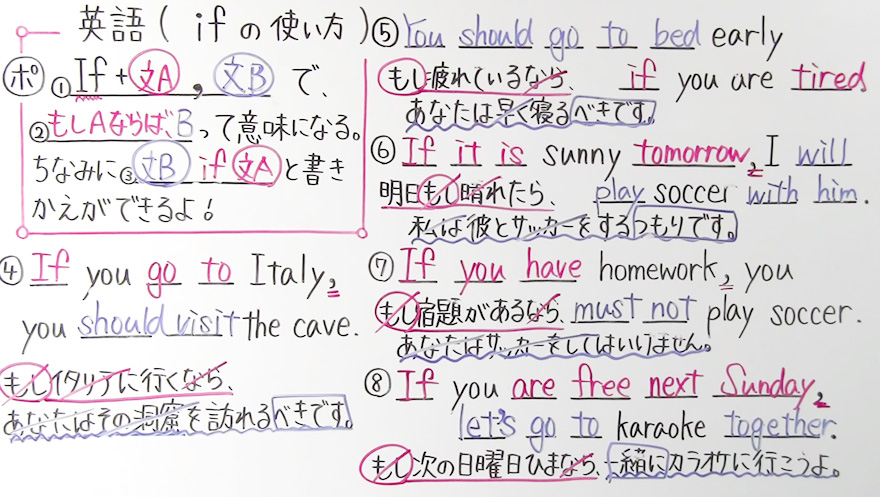 英語(ifの使い方)
ポ ①If+文A, 文Bで、
②もしAならば、Bって意味になる。
ちなみに③文B if 文Aと書き
かえができるよ!
④If you go to Italy,
you should visit the cave.
もしイタリアに行くなら、
あなたはその洞窟を訪れるべきです。
⑤You should go to bed early
もし疲れているなら、 if you are tired
あなたは早く寝るべきです。
⑥If it is sunny tomorrow, I will
明日もし晴れたら、 play soccer with him.
私は彼とサッカーをするつもりです。
⑦If you have homework, you
もし宿題があるなら、 must not play soccer.
あなたはサッカーをしてはいけません。
⑧If you are free next Sunday,
let's go to karaoke together.
もし次の日曜日ひまなら、一緒にカラオケに行こうよ。